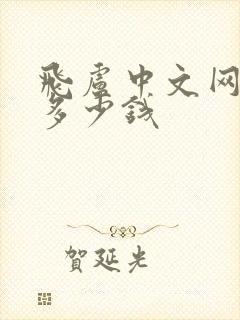 飛盧中文网
多少錢
賀延光